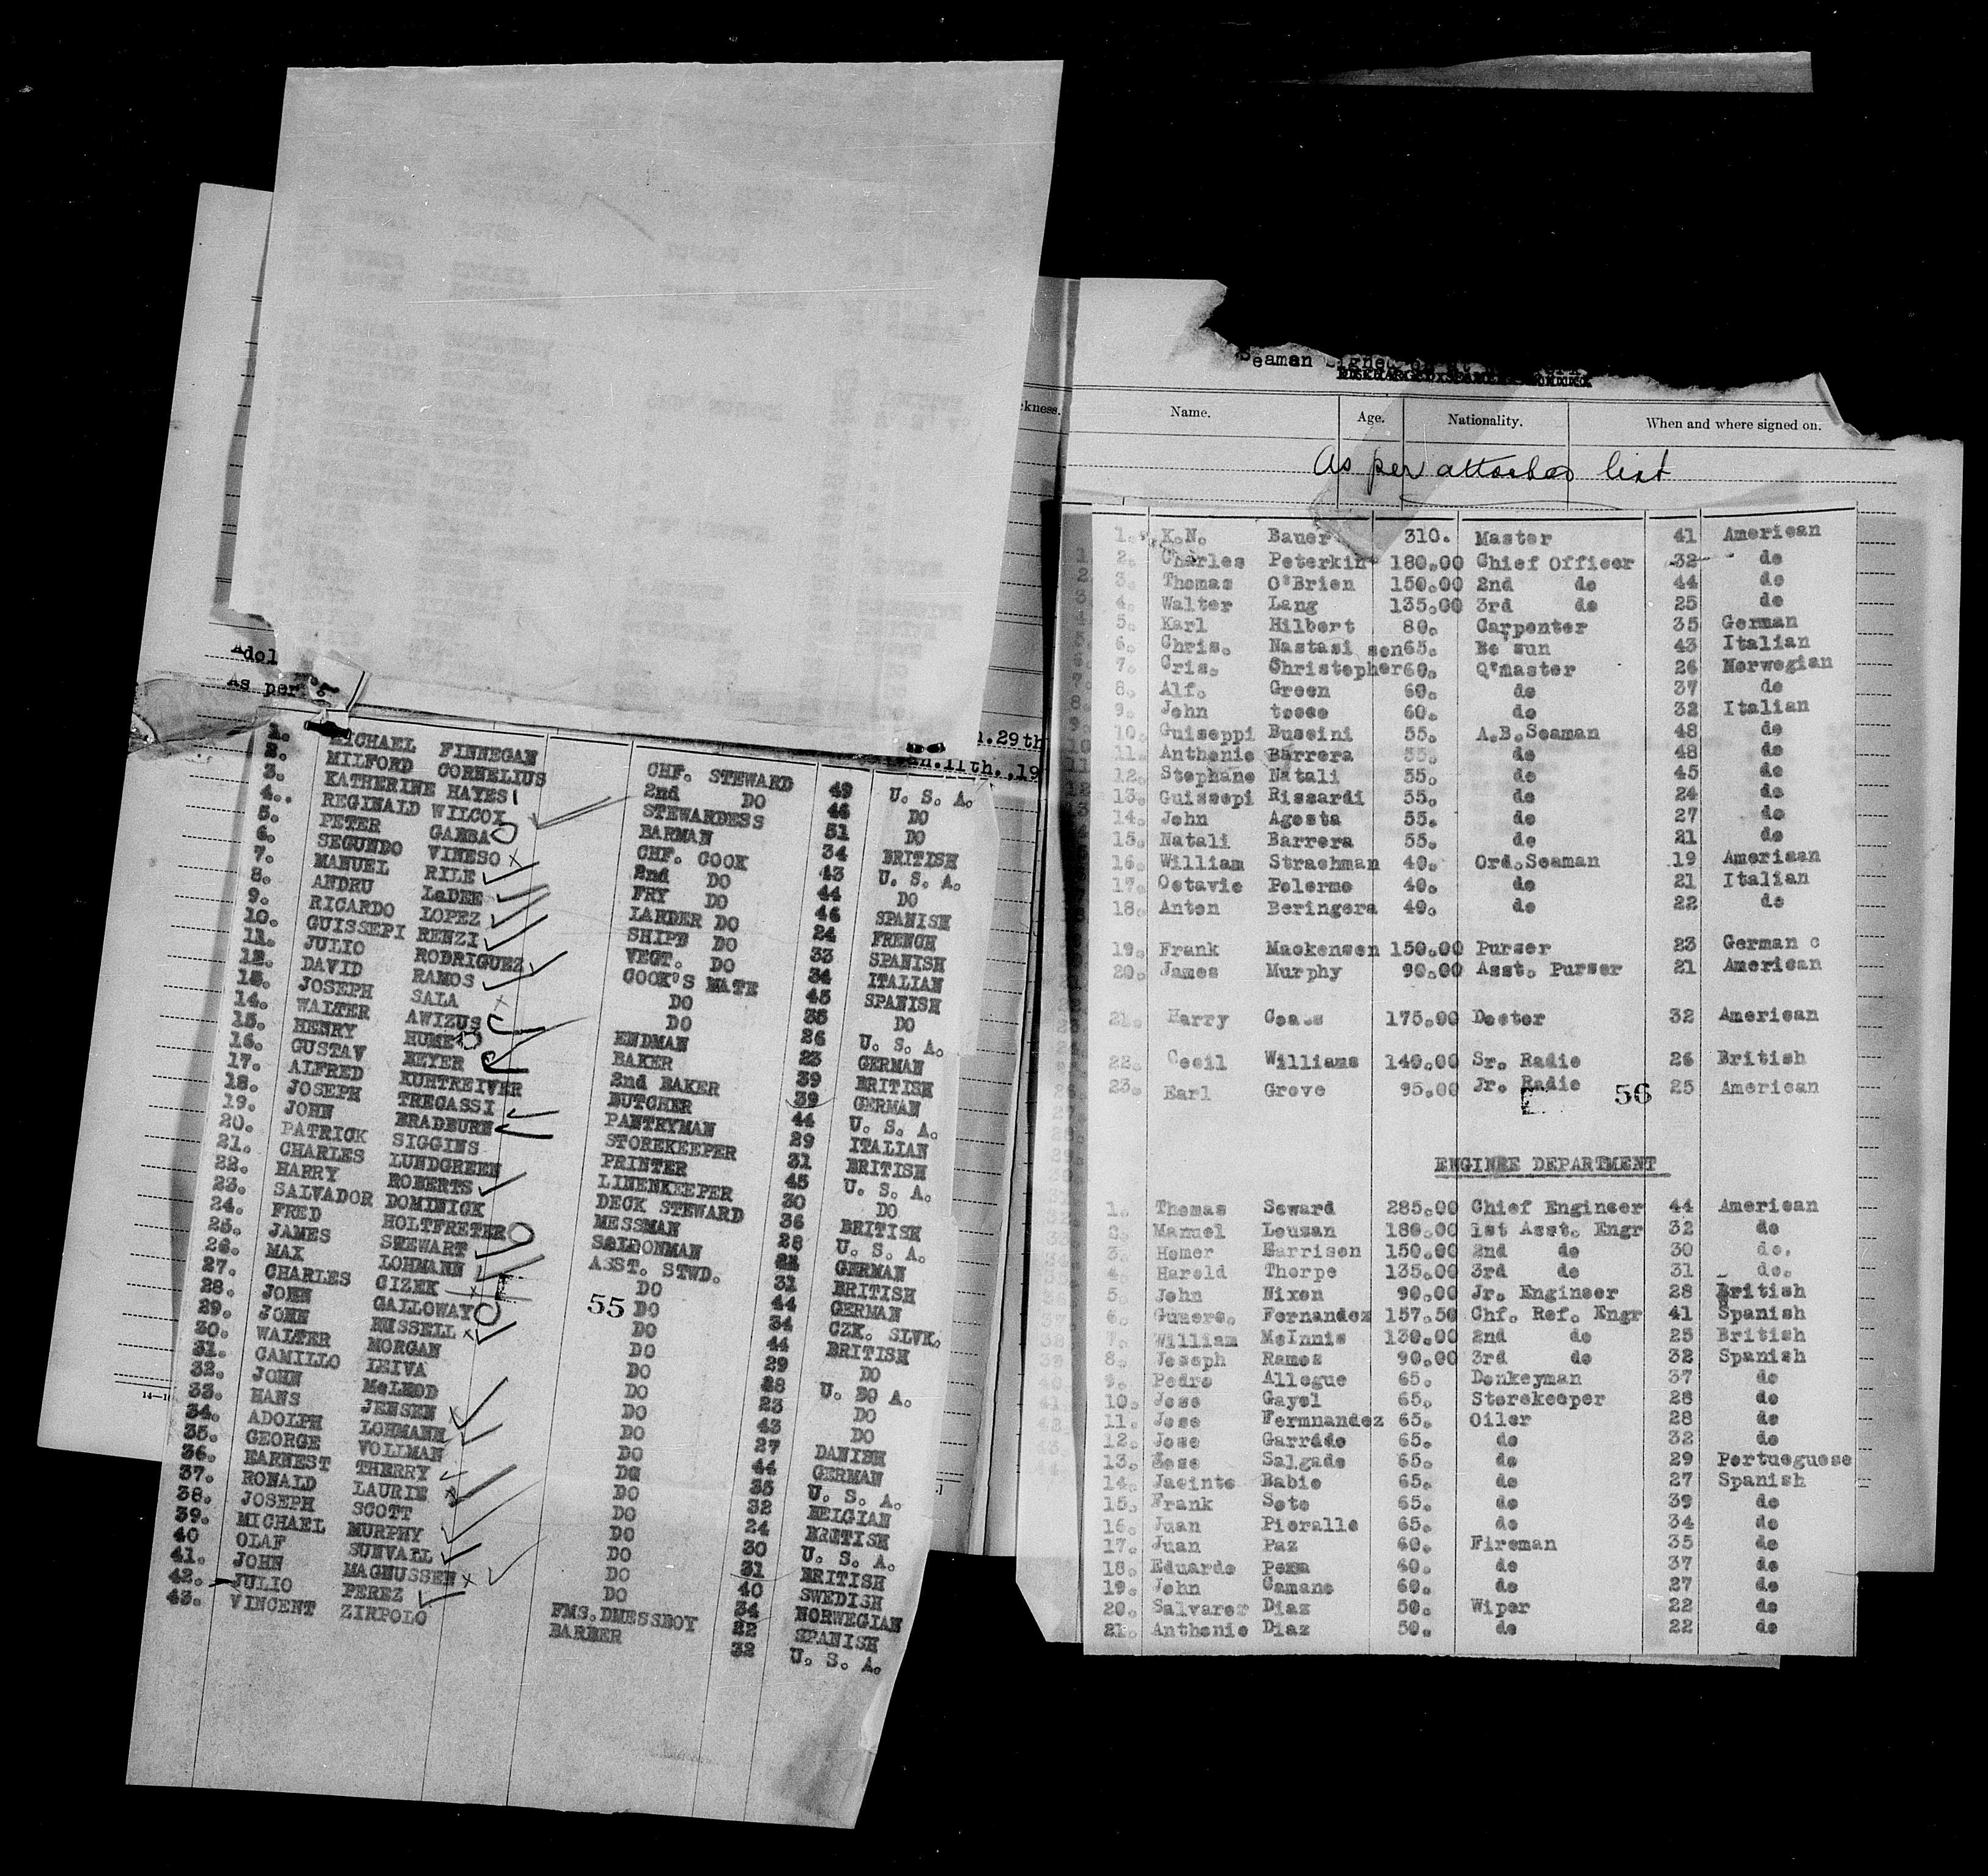 Adol
As per
n.29th
an.11th.,19
1. MICHAEL FINNEGAN CHF. STEWARD 49 U. S. A.
2. MILFORD CORNELIUS 2nd DO 46 DO
3. KATHERINE HAYES STEWARDESS 51 DO
4.. REGINALD WILCOX BARMAN 34 BRITISH
5. PETER GAMBA CHF. COOK 43 U. S. A.
6. SEGUNDO VINESO 2nd DO 44 DO
7. MANUEL RILE FRY DO 46 SPANISH
8. ANDRU LaDEE LARDER DO 24 FRENCH
9. RICARDO LOPEZ SHIPS DO 33 SPANISH
10. GUISSEPI RENZI VEGT. DO 34 ITALIAN
11. JULIO RODRIGUEZ COOK'S MATE 45 SPANISH
12. DAVID RAMOS DO 35 DO
13. JOSEPH SALA DO 26 U. S. A.
14. WALTER AWIZUS ENDMAN 23 GERMAN
15. HENRY HUME BAKER 39 BRITISH
16. GUSTAV MEYER 2nd BAKER 39 GERMAN
17. ALFRED KUHTREIVER BUTCHER 44 U. S. A.
18. JOSEPH TREGASSI PANTRYMAN 29 ITALIAN
19. JOHN BRADBURN STOREKEEPER 31 BRITISH
20. PATRICK SIGGINS PRINTER 45 U. S. A.
21. CHARLES LUNDGREEN LINENKEEPER 30 DO
22. HARRY ROBERTS DECK STEWARD 36 BRITISH
23. SALVADOR DOMINICK MESSMAN 28 U. S. A.
24. FRED HOLTFRETER SALOONMAN 21 GERMAN
25. JAMES STEWART ASST. STWD. 31 BRITISH
26. MAX LOHMANN DO 44 GERMAN
27. CHARLES CIZEK 55 DO 34 CZK. SLVK.
28. JOHN GALLOWAY DO 44 BRITISH
29. JOHN RUSSELL DO 29 DO
30. WALTER MORGAN DO 28 U. S. A.
31. CAMILLO LEIVA DO 23 DO
32. JOHN McLEOD DO 43 DO
33. HANS JENSEN DO 27 DANISH
34. ADOLPH LOHMANN DO 44 GERMAN
35. GEORGE VOLLMAN DO 35 U. S. A.
36. EARNEST THERRY DO 32 BELGIAN
37. RONALD LAURIE DO 24 BRITISH
38. JOSEPH SCOTT DO 30 U. S. A.
39. MICHAEL MURPHY DO 31 BRITISH
40 OLAF SUNVALL DO 40 SWEDISH
41. JOHN MAGNUSSEN DO 34 NORWEGIAN
42. JULIO PEREZ FMS.DMESSBOY 22 SPANISH
43. VINCENT ZIRPOLO BARBER 32 U. S. A.
14—1
Seaman Signed
ckness. Name. Age. Nationality. When and where signed on.
As per attached list
1. K.N. Bauer 310. Master 41 American
2. Charles Peterkin 180.00 Chief Officer 32 do
3. Thomas O'Brien 150.00 2nd do 44 do
4. Walter Lang 135.00 3rd do 25 do
5. Karl Hilbert 80. Carpenter 35 German
6. Chris. Nastasi 65. Bo'sun 43 Italian
7. Cris. Christophersen 60. Q'master 26 Norwegian
8. Alf. Green 60. do 37 do
9. John tosco 60. do 32 Italian
10. Guiseppi Buscini 55. A.B.Seaman 48 do
11. Anthonio Barrera 55. do 48 do
12. Stephano Natali 55. do 45 do
13. Guissepi Rissardi 55. do 24 do
14. John Agosta 55. do 27 do
15. Natali Barrera 55. do 21 do
16. William Strachman 40. Ord.Seaman 19 American
17. Octavio Polermo 40. do 21 Italian
18. Anton Beringera 40. do 22 do
19. Frank Mackensen 150.00 Purser 23 German c
20. James Murphy 90.00 Asst. Purser 21 American
21. Harry Coats 175.00 Doctor 32 American
22. Cecil Williams 140.00 Sr. Radio 26 British
23. Earl Grove 95.00 Jr. Radio 25 American
56
ENGINEE DEPARTMENT
1. Thomas Seward 285.00 Chief Engineer 44 American
2. Manuel Louzan 180.00 1st Asst. Engr 32 do
3. Homer Harrison 150.00 2nd do 30 do.
4. Harold Thorpe 135.00 3rd do 31 do.
5. John Nixon 90.00 Jr. Engineer 28 British
6. Gumers. Fernandez 157.50 Chf. Ref. Engr 41 Spanish
7. William McInnis 130.00 2nd do 25 British
8. Joseph Ramos 90.00 3rd do 32 Spanish
9. Pedro Allegue 65. Donkeyman 37 do
10. Jose Gayol 65. Storekeeper 28 do
11. Jose Fermnandez 65. Oiler 28 do
12. Jose Garrddo 65. do 32 do
13. Jose Salgado 65. do 29 Portueguese
14. Jacinto Babio 65. do 27 Spanish
15. Frank Soto 65. do 39 do
16. Juan Pioralle 65. do 34 do
17. Juan Paz 60. Fireman 35 do
18. Eduardo Pena 60. do 37 do
19. John Camano 60. do 27 do
20. Salvarer Diaz 50. Wiper 22 do
21. Anthonio Diaz 50. do 22 do